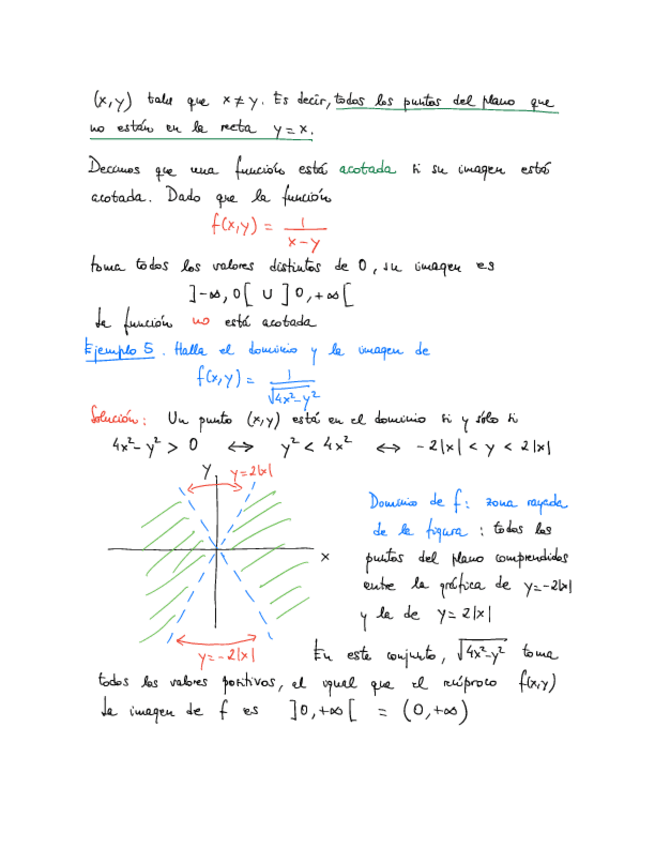 (x,y) tales que x ≠ y. Es decir, todos los puntos del plano que
no están en la recta y = x.
Decimos que una función está acotada si su imagen está
acotada. Dado que la función
f(x,y) = 1/(x-y)
toma todos los valores distintos de 0, su imagen es
]-∞, 0[ ∪ ]0, +∞[
La función no está acotada
Ejemplo 5. Halla el dominio y la imagen de
f(x,y) = 1/√(4x²-y²)
Solución: Un punto (x,y) está en el dominio si y sólo si
4x²-y² > 0 ⟷ y² < 4x² ⟷ -2|x| < y < 2|x|
y
y=2|x|
x
y=-2|x|
Dominio de f: zona rayada
de la figura: todos los
puntos del plano comprendidos
entre la gráfica de y=-2|x|
y la de y=2|x|
En este conjunto, √(4x²-y²) toma
todos los valores positivos, al igual que el recíproco f(x,y)
La imagen de f es ]0,+∞[ = (0,+∞)